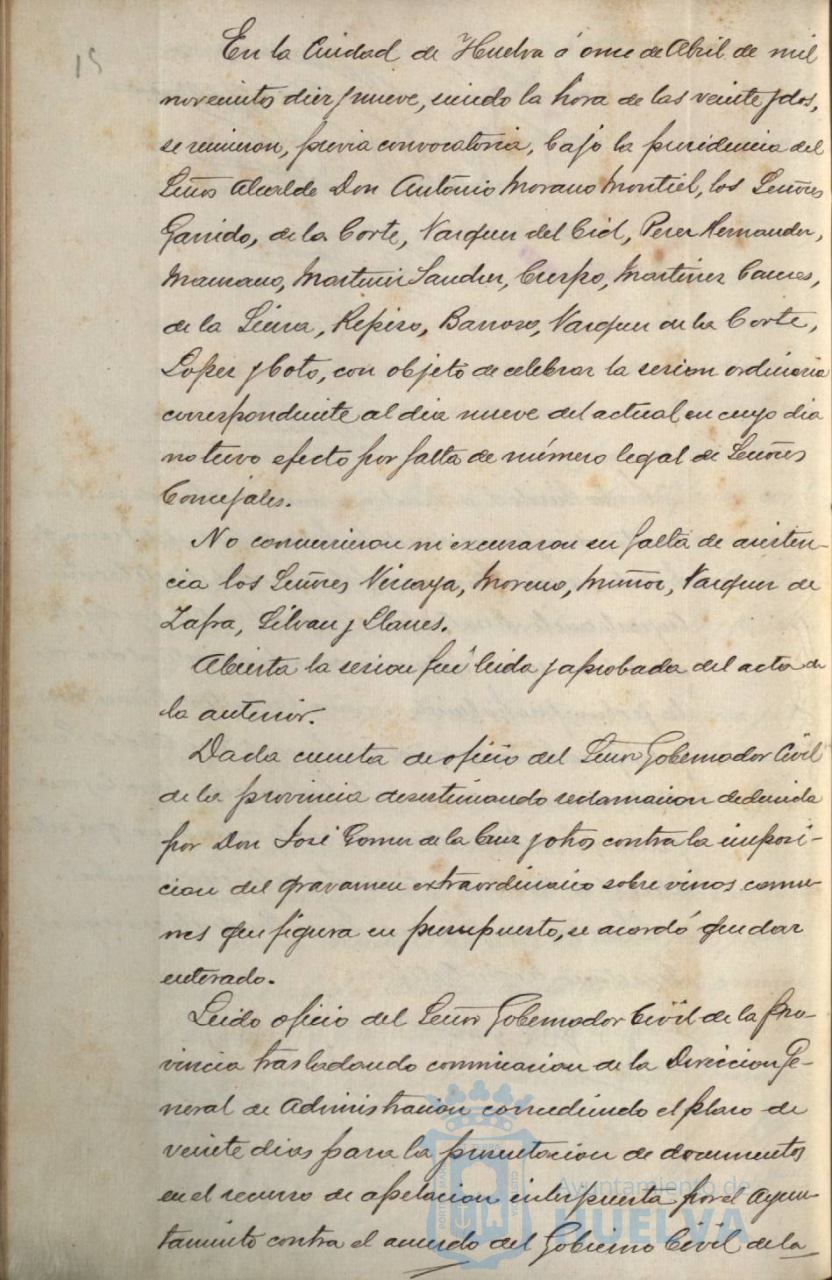 15
En la Ciudad de Huelva á once de Abril de mil
novecientos diez y nueve, siendo la hora de las veinte y dos,
se reunieron, previa convocatoria, bajo la presidencia del
Señor Alcalde Don Antonio Morano Montiel, los Señores
Garrido, de la Corte, Vazquez del Cid, Perez Hernandez,
Mascaros, Martinez Sanchez, Crespo, Martinez Cames,
de la Sierra, Repiso, Barroso, Vazquez de la Corte,
Lopez y Coto, con objeto de celebrar la sesion ordinaria
correspondiente al dia nueve del actual en cuyo dia
no tuvo efecto por falta de número legal de Señores
Concejales.
No concurrieron ni excusaron su falta de asisten-
cia los Señores Vizcaya, Moreno, Muñoz, Vazquez de
Zafra, Silvan y Llanes.
Abierta la sesion fué leida y aprobada del acta de
la anterior.
Dada cuenta de oficio del Señor Gobernador Civil
de la provincia desestimando reclamacion deducida
por Don José Gomez de la Cruz y otros contra la imposi-
cion del gravamen extraordinario sobre vinos comu-
nes que figura en presupuesto, se acordó quedar
enterado.
Leido oficio del Señor Gobernador Civil de la pro-
vincia trasladando comunicacion de la Direccion Ge-
neral de Administracion concediendo el plazo de
veinte dias para la presentacion de documentos
en el recurso de apelacion interpuesta por el Ayun-
tamiento contra el acuerdo del Gobierno Civil de la
Ayuntamiento de
HUELVA